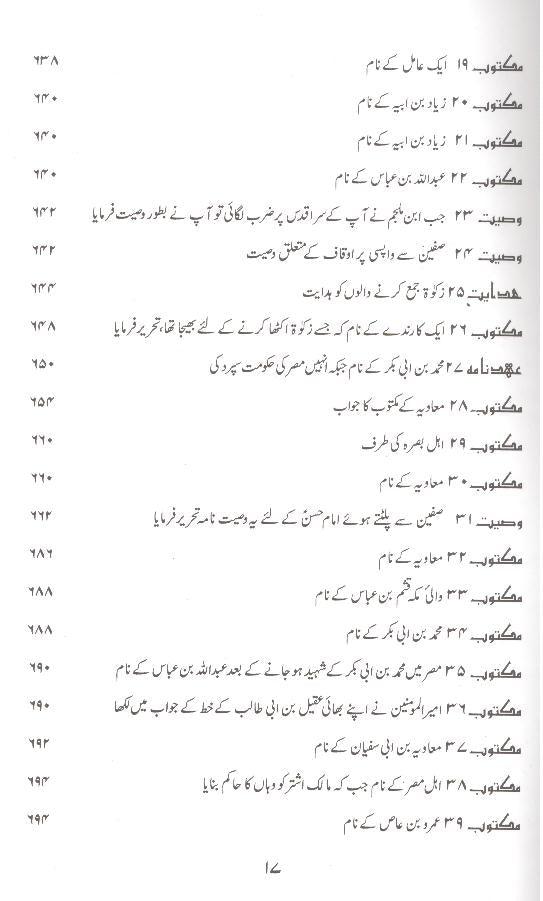 مکتوب ۱۹ ایک عامل کے نام ۶۳۸
مکتوب ۲۰ زیاد بن ابیہ کے نام ۶۴۰
مکتوب ۲۱ زیاد بن ابیہ کے نام ۶۴۰
مکتوب ۲۲ عبداللہ بن عباس کے نام ۶۴۰
وصیت ۲۳ جب ابن ملجم نے آپ کے سر اقدس پر ضرب لگائی تو آپ نے بطور وصیت فرمایا ۶۴۲
وصیت ۲۴ صفین سے واپسی پر اوقاف کے متعلق وصیت ۶۴۲
ھدایت ۲۵ زکوٰۃ جمع کرنے والوں کو ہدایت ۶۴۴
مکتوب ۲۶ ایک کارندے کے نام کہ جسے زکوٰۃ اکٹھا کرنے کے لئے بھیجا تھا، تحریر فرمایا ۶۴۸
عھدنامہ ۲۷ محمد بن ابی بکر کے نام جبکہ انہیں مصر کی حکومت سپرد کی ۶۵۰
مکتوب ۲۸ معاویہ کے مکتوب کا جواب ۶۵۴
مکتوب ۲۹ اہل بصرہ کی طرف ۶۶۰
مکتوب ۳۰ معاویہ کے نام ۶۶۰
وصیت ۳۱ صفین سے پلٹتے ہوئے امام حسنؑ کے لئے یہ وصیت نامہ تحریر فرمایا ۶۶۲
مکتوب ۳۲ معاویہ کے نام ۶۸۶
مکتوب ۳۳ والیٔ مکہ قثم بن عباس کے نام ۶۸۸
مکتوب ۳۴ محمد بن ابی بکر کے نام ۶۸۸
مکتوب ۳۵ مصر میں محمد بن ابی بکر کے شہید ہو جانے کے بعد عبداللہ بن عباس کے نام ۶۹۰
مکتوب ۳۶ امیرالمومنین نے اپنے بھائی عقیل بن ابی طالب کے خط کے جواب میں لکھا ۶۹۰
مکتوب ۳۷ معاویہ بن ابی سفیان کے نام ۶۹۲
مکتوب ۳۸ اہل مصر کے نام جب کہ مالک اشتر کو وہاں کا حاکم بنایا ۶۹۴
مکتوب ۳۹ عمرو بن عاص کے نام ۶۹۴
۱۷